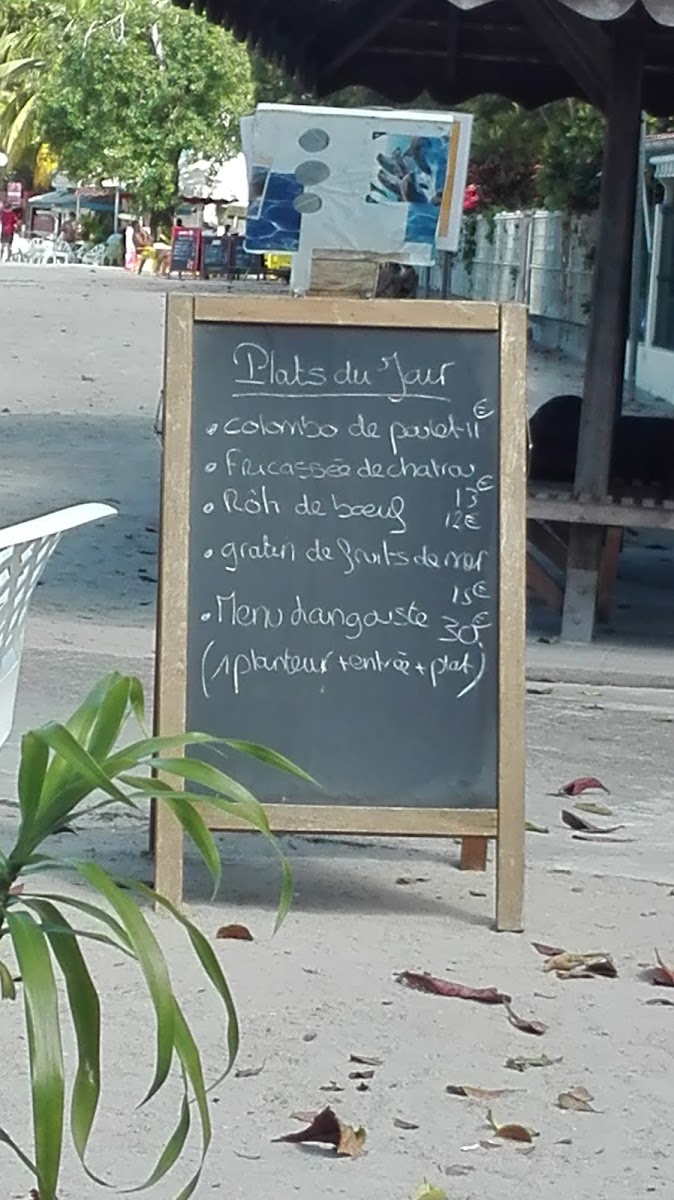 Plats du Jour
• colombo de poulet 11€
• Fricassée de chatrou
13€
• Rôti de boeuf 12€
• gratin de fruits de mer
15€
• Menu Langouste 30€
(1 planteur + entrée + plat)